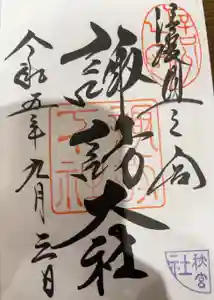 信濃國一之宮
諏訪大社
令和五年九月三日
秋宮